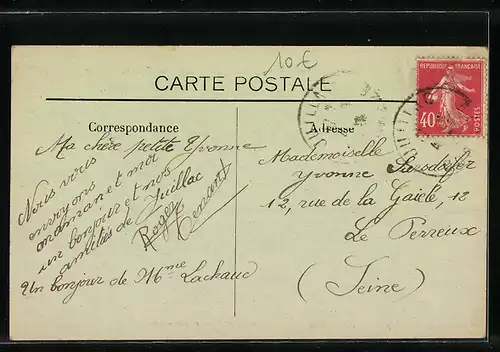 10€
CARTE POSTALE
Correspondance
Adresse
REPUBLIQUE FRANÇAISE
40
POSTES
JUILLAC
Ma chère petite Yvonne
Nous vous
envoyons
maman et moi
un bonjour et nos
amitiés de Juillac
Roger
Un bonjour de Mme Lachaud
Mademoiselle
Yvonne
12, rue de la Gaîeté, 12
Le Perreux
(Seine)